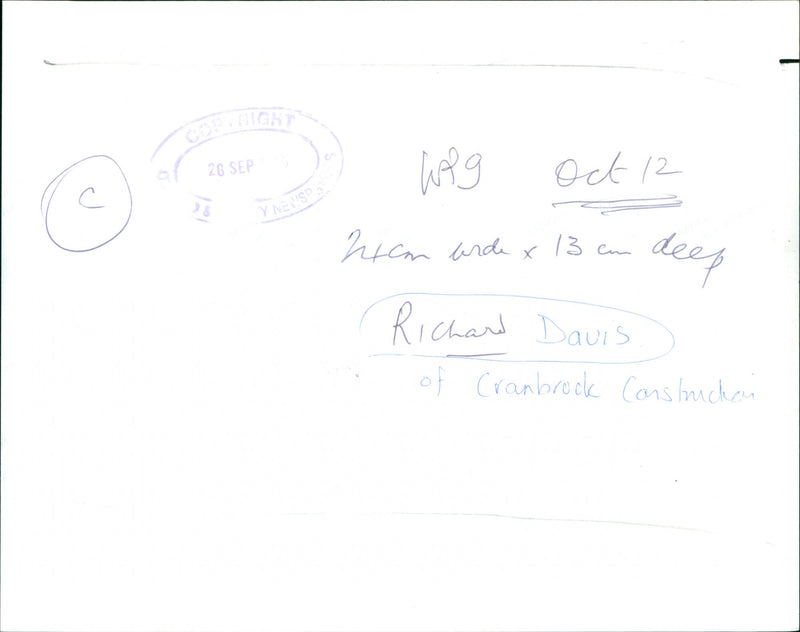 COPYRIGHT
26 SEP
Y NEWSP
C
Oct 12
wide x 13 cm deep
Richard Davis
of Cranbrook Construction